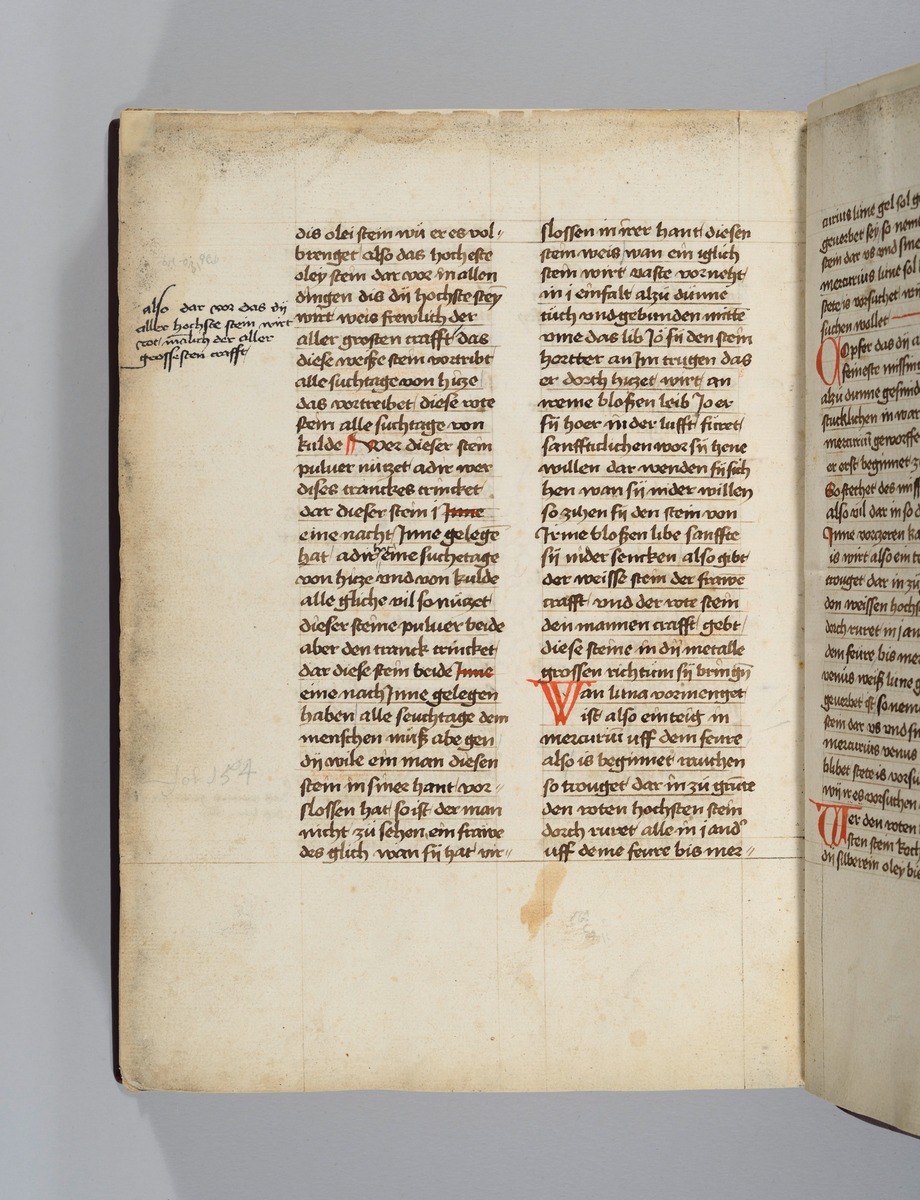 also dar vor das dÿ
aller hochste stein wirt
rot m̄lich der aller
grossesten crafft
dis olei stein wū er es vol〃
brenget also das hocheste
oley stein dar vor in allen
dingen dis dÿ hochste steȳ
wirt weis frewlich der
aller grosten crafft das
diese weiße stein vortribt
alle suchtage von hicze
das vortreibet diese rote
stein alle suchtage von
kulde Wer dieser stein
puluer nuczet adir wer
dises tranckes trincket
dar dieser stein j Inne
eine nacht Inne gelegē
hat adir eine suchetage
von hicze vnd von kulde
alle gliche vil so nuczet
dieser steine puluer beide
aber den tranck trincket
dar diese stein beide Inne
eine nach Inne gelegen
haben alle seuchtage dem
menschen muß abe gen
dÿ wile ein man diesen
stein in siner hant vor〃
slossen hat so ist der man
nicht zu sehen ein frawe
des glich wan sÿ hat vir〃
slossen in irer hant diesen
stein weis wan ein iglich
stein wirt vaste vorneht
in j einfalt alzu dünne
tuch vnd gebunden mitte
vme das lib Jo sÿ den stein
hertter an Im trugen das
er dorch hiczet wirt an
reme bloßen leib Jo er
sÿ hoer in der lufft füret
sanffticlichen wor sÿ hene
willen dar wenden sÿ sich
hen wan sÿ nider willen
so zihen sÿ den stein von
Irme bloßen libe sanffte
sÿ nider sencken also gibt
der weisse stein der frawe
crafft vnd der rote stein
den mannen crafft gebt
diese steine in dÿ metalle
grossen richtum sÿ bringē
Wan luna vormenget
ist also ein teig in
mercuriū uff dem feure
also is beginnet rauchen
so trouget dar in zū grūte
den roten hochsten stein
dorch ruret alle in j and'
uff deme feure bis mer〃
curius lune gel sol
geuerbet sey so nem
stein dar vs vnd
mercurius lune sol
stete is vorsuchet
suchen wollet
Copfer das dÿ
feineste missing
alzu dunne
stucklichen in
mercuriū geworffe
er erst beginnet
So stechet des
also vil dar in so
Inne vorzeren
is wirt also ein
trouget dar in zu
den weissen hochs
dorch ruret in j
dem feure bis
venus weiß lune
geuerbet ist so nem
stein dar vs vnd
mercurius venus
blibet stete is
wÿ ir es vorsuchen
Wer den roten
sten stein koch
dÿ silberein oley